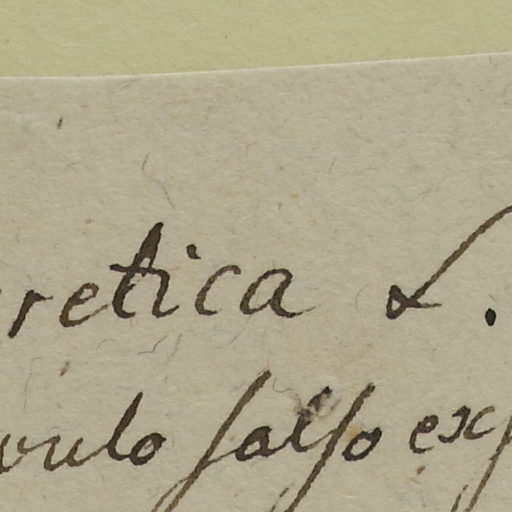 retica L.
vulo salso ex